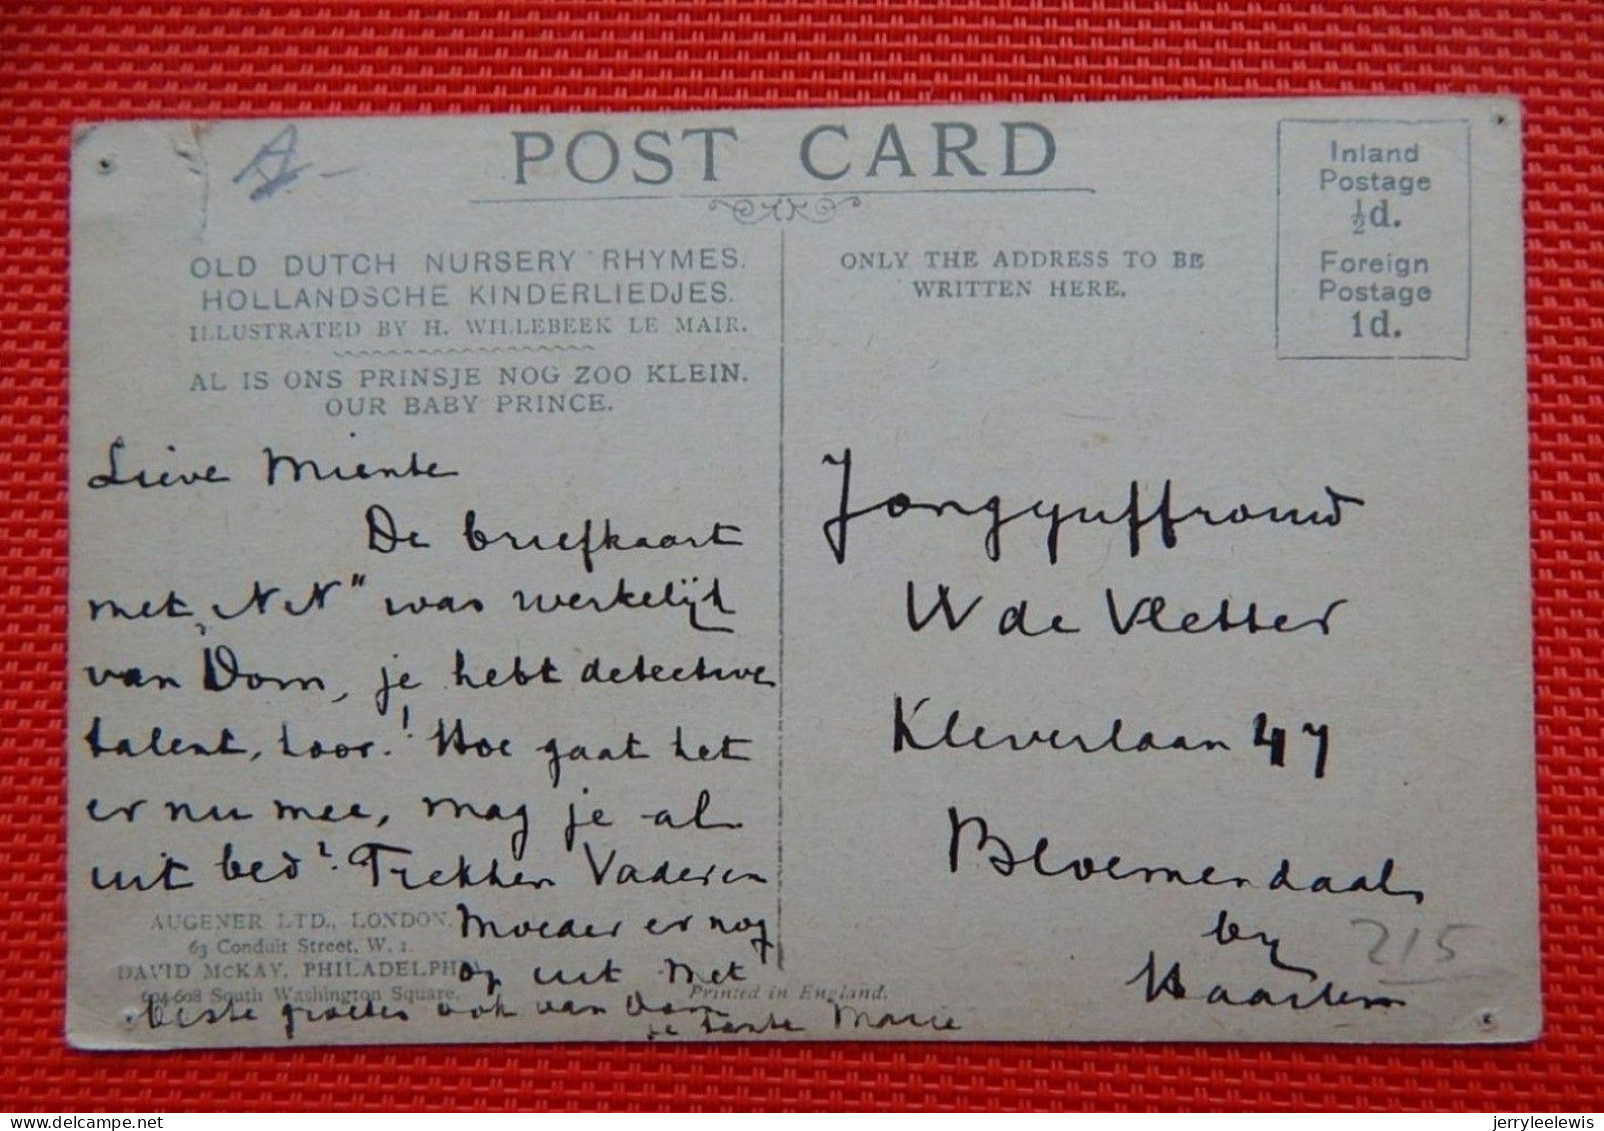 A-
POST CARD
OLD DUTCH NURSERY RHYMES.
HOLLANDSCHE KINDERLIEDJES.
ILLUSTRATED BY H. WILLEBEEK LE MAIR.
AL IS ONS PRINSJE NOG ZOO KLEIN.
OUR BABY PRINCE.
Lieve Miente
De briefkaart
met „N N" was werkelijk
van Dom, je hebt detective
talent, hoor! Hoe gaat het
er nu mee, mag je al
uit bed? Trekken Vader en
Moeder er nog
op uit Met
beste groeten ook van Dom
je tante Marie
AUGENER LTD., LONDON.
63 Conduit Street, W. 1.
DAVID McKAY, PHILADELPHIA
604-608 South Washington Square.
Printed in England.
ONLY THE ADDRESS TO BE
WRITTEN HERE.
Inland
Postage
½d.
Foreign
Postage
1d.
Jongejuffrouw
W de Vletter
Kleverlaan 47
Bloemendaal
by
Haarlem
215
delcampe.net
jerryleelewis